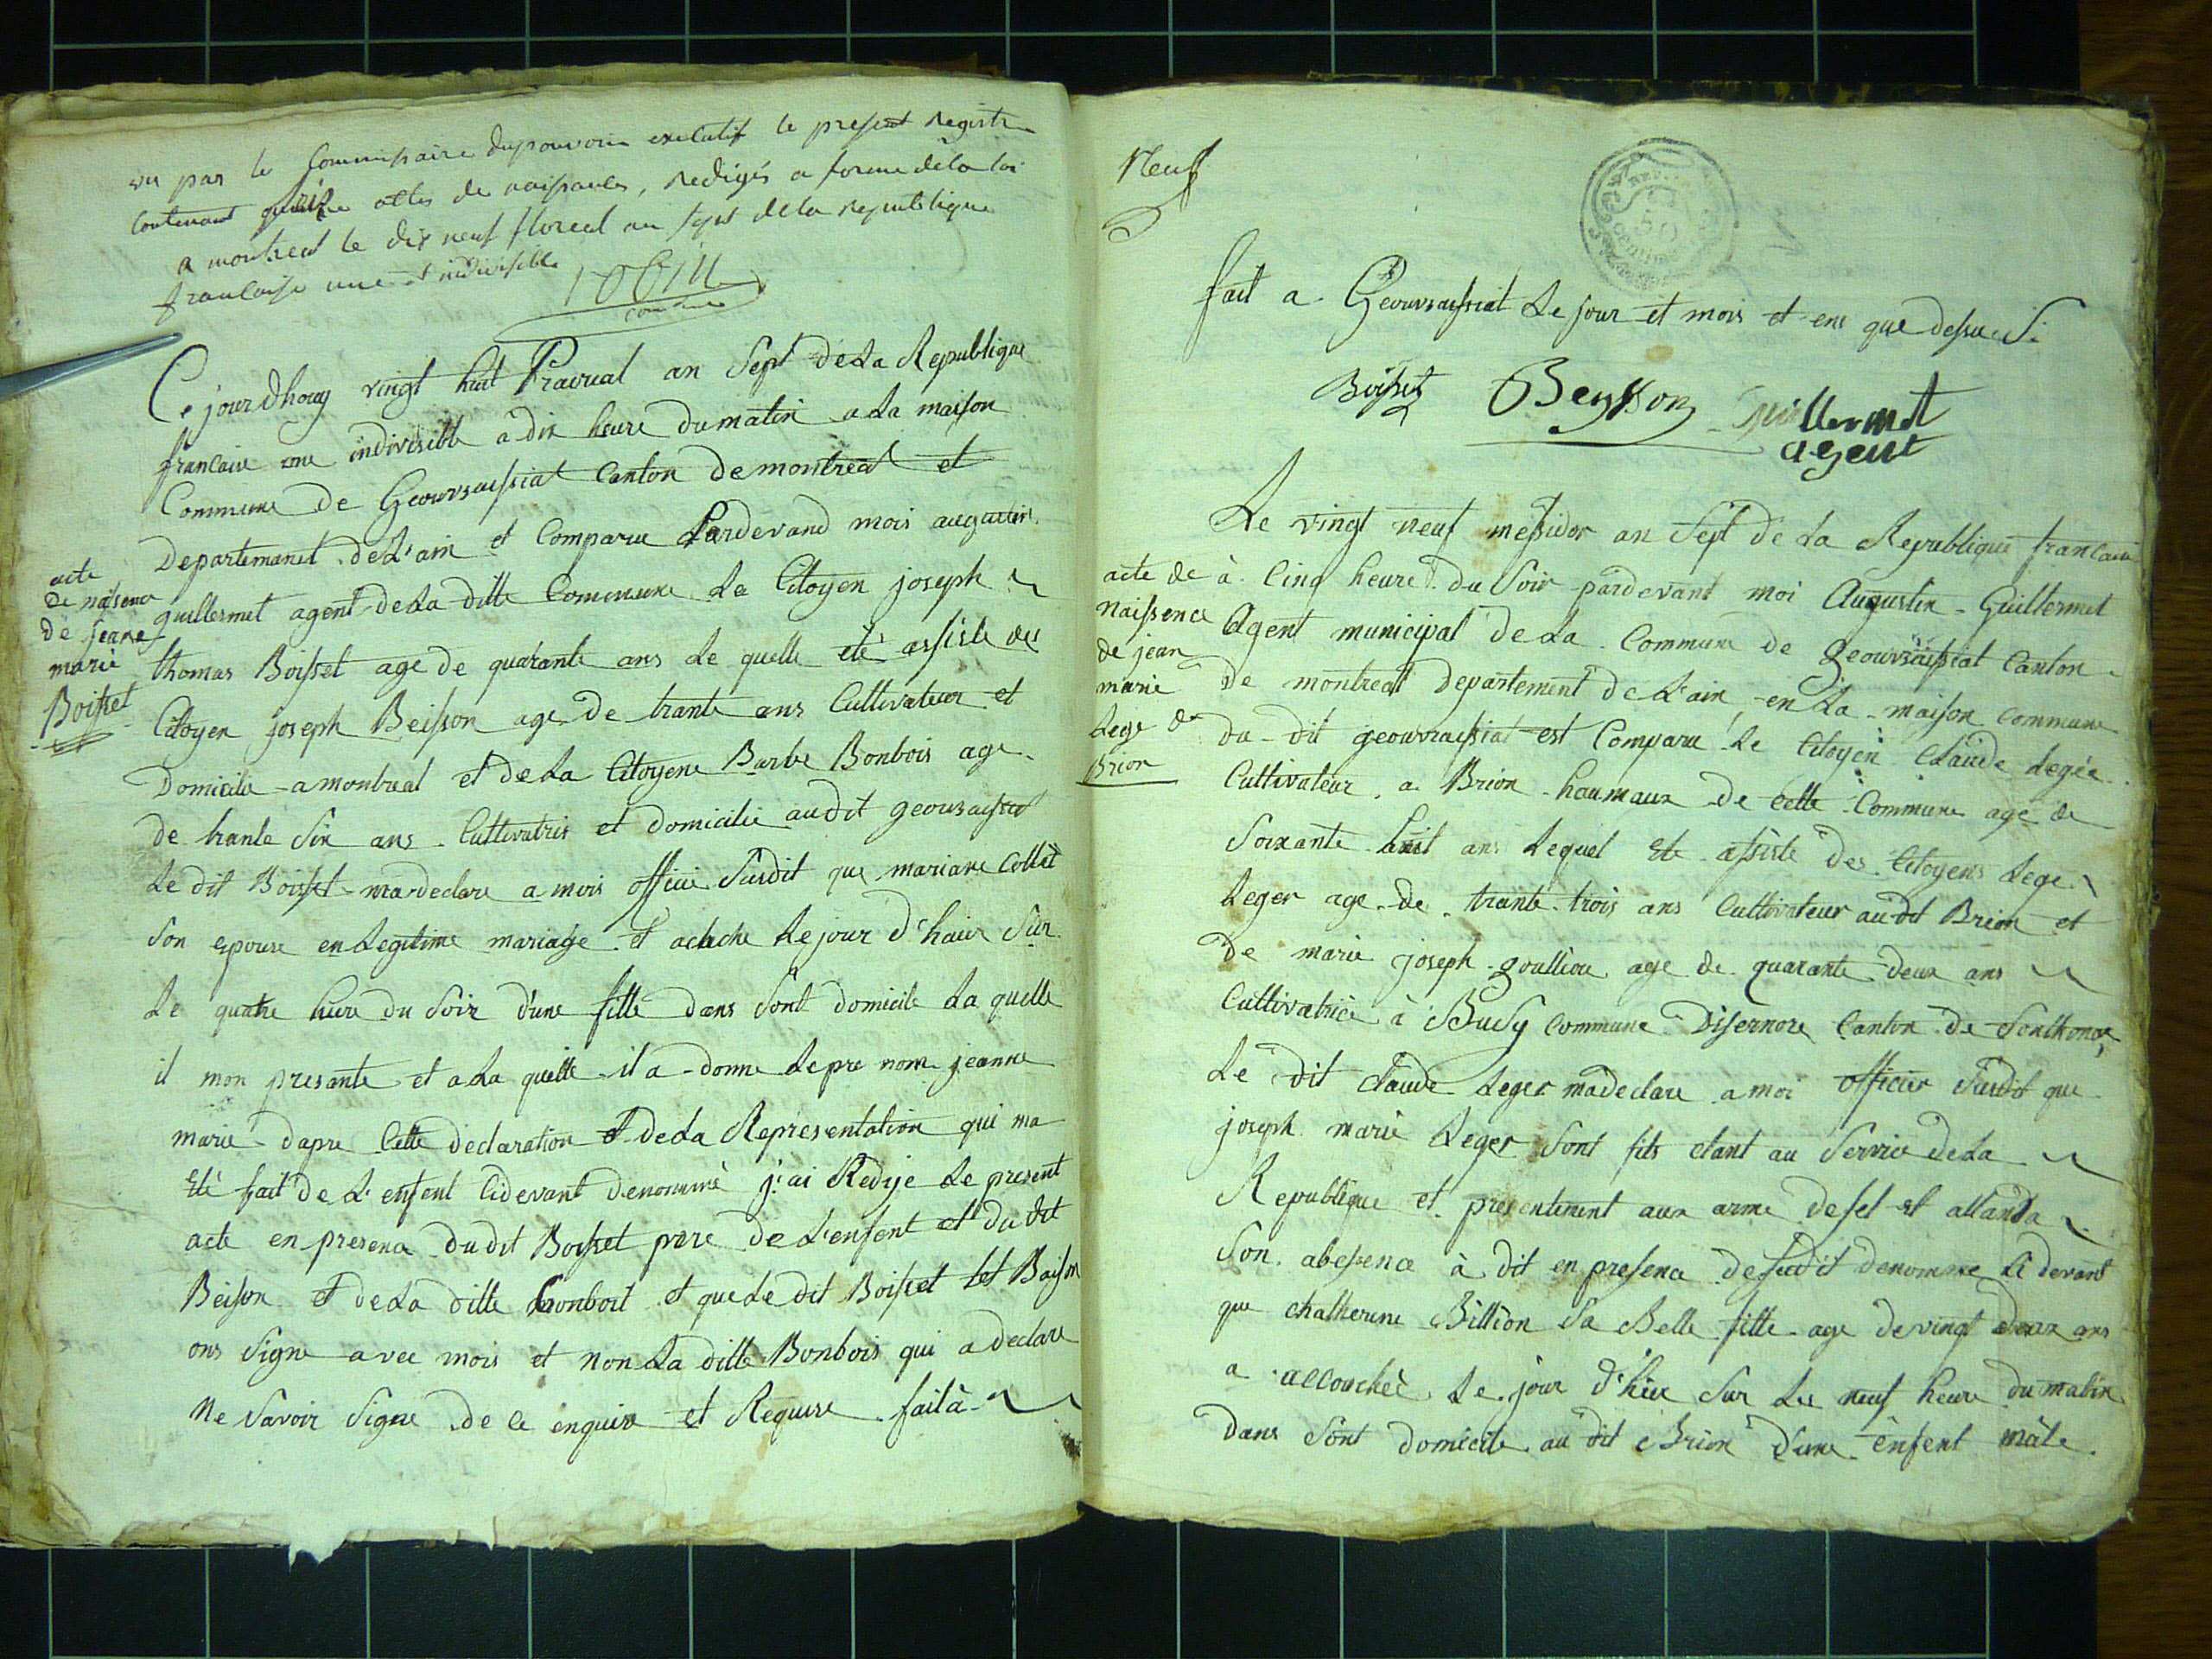 vu par le Commissaire du pouvoir executif le present registre
Contenant actes de naissances, redigés a forme de la loi
a montreal le dix neuf floreal an sept de la republique
francaise une et indivisible
Ce jour Dhouy vingt huit Prairial an Sept de La Republique
francaise une indivisible a dix heure du matin a La maison
Commune de Geovraissiat Canton de montreal et
Departemanet de L'ain et Comparu Pardevand mois augustin
guillermet agent de La ditte Commune Le Citoyen joseph
thomas Boisset age de quarante ans Le quelle eté assiste des
Citoyen joseph Beisson age de trante ans Cultivateur et
Domicile a montreal et de La Citoyene Barbe Bonbois age
de trante Six ans Cultivatris et domicilie audit geovraissiat
Le dit Boisset ma declare a mois officie Susdit que mariane Collet
Son epouse en Legitime mariage et acluche Le jour d'haier Sur
Le quatre heure du Soir d'une fille dans Sont domicile La quelle
il mon presante et a La quelle il a donne Le pre nom jeanne
marie dapre Cette declaration et de La Representation qui ma
Eté fait de L'enfent Cidevant denommé j'ai Redije Le present
acte en presence dudit Boisset pere de L'enfent et du dit
Beison et de La ditte Bonboit et que Le dit Boisset Let Baison
ons Signe avec mois et non La ditte Bonbois qui a declare
Ne Savoir Signe de ce enquire et Requise fait à
acte
de nasence
de jeane
marie
Boisset
Neuf
50
fait a Geovraissiat Le jour et mois et ens que dessu
Boisset Beysson Guillermet
agent
Le vingt neuf messidor an Sept de La Republique francaise
à Cinq heure du Soir pardevant moi Augustin Guillermet
Agent municipal de La Commune de Geovraissiat Canton
de montreal departement de L'ain, en La maison Commune
du dit geovraissiat est Comparu Le Citoyen Claude Legée
Cultivateur a Brion haumaux de Cette Commune age de
Soixante huit ans Lequel Ete assiste des Citoyens Lege
Leger age de trante trois ans Cultivateur audit Brion et
de marie joseph goullioux age de quarante deux ans
Cultivatrice à Busy Commune Disernore Canton de Sonthonax
Le dit Claude Leger ma declare a moi officier Susdit que
joseph marie Leger Sont fils etant au Service de La
Republique et presentement aux arme defet et attanda
Son abessence à dit en presence desudit denomme Ci devant
que Chatherine Billion Sa Belle fille age de vingt deux ans
a accouchée Le jour d'hiex Sur Les neuf heure du matin
dans Sont domicile au dit Brion d'une enfent mâle
acte de
Naissence
de jean
marie
Lege de
Brion